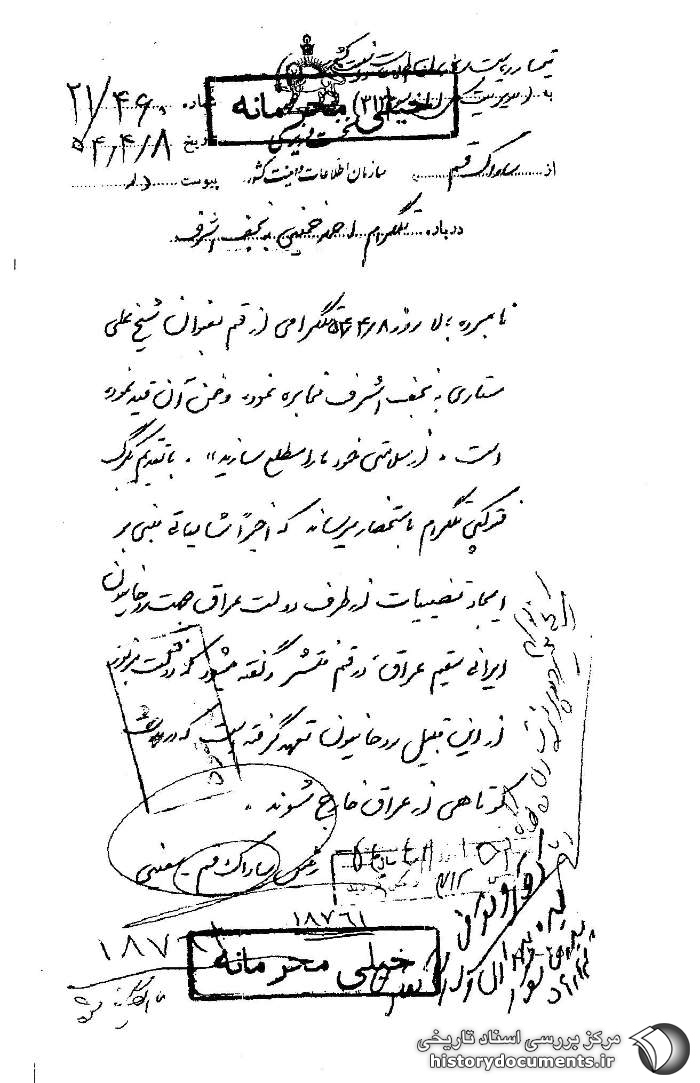 خیلی محرمانه
شماره ۲۱/۴۶۰
نخست وزیری
تاریخ ۵۴/۴/۸
از ساواک قم
سازمان اطلاعات و امنیت کشور
پیوست دارد
درباره تلگرام احمد خمینی به نجف اشرف
نامبرده بالا روز ۵۴/۴/۸ تلگرامی از قم بعنوان شیخ علی
ستاری به نجف اشرف مخابره نموده و ضمن آن قید نموده
است . از سلامتی خود ما را مطلع سازید» . با تقدیم یک برگ
فتوکپی تلگرام باستحضار میرساند که اخیراً شایعاتی مبنی بر
ایجاد تضییقات از طرف دولت عراق جهت روحانیون
ایرانی مقیم عراق، در قم منتشر و گفته میشود که دولت مزبور
از این قبیل روحانیون تعهد گرفته است که در مدت
کوتاهی از عراق خارج شوند .
رئیس ساواک قم - معینی
۱۸۷۶۱
۱۸۷۶۱
خیلی محرمانه
مرکز بررسی اسناد تاریخی
historydocuments.ir